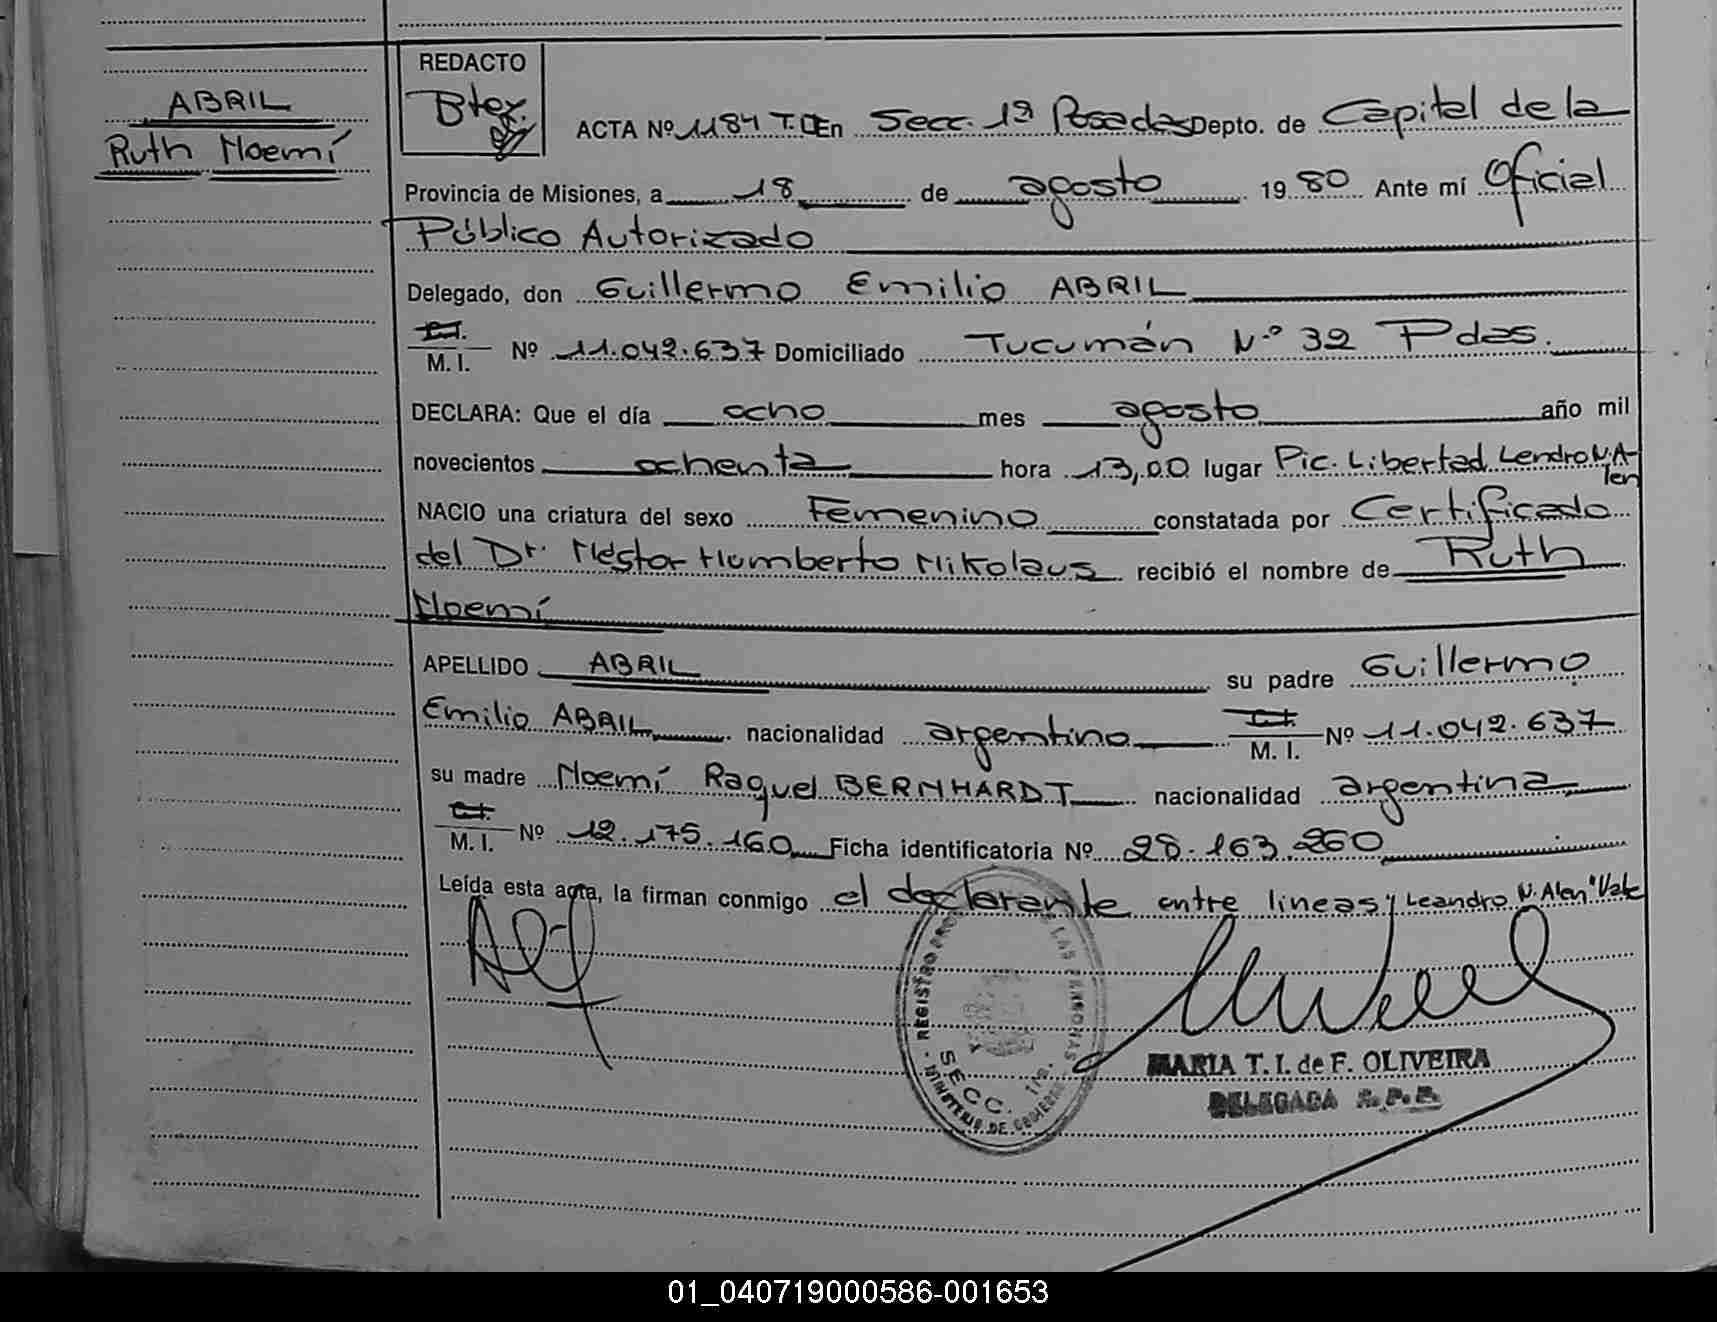 ABRIL
Ruth Noemí
REDACTO
Btex.
ACTA Nº 1184 T.D En Secc. 1ª Posadas Depto. de Capital de la
Provincia de Misiones, a 18 de agosto 19 80 Ante mí Oficial
Público Autorizado
Delegado, don Guillermo Emilio ABRIL
C.I.
M. I. Nº 11.042.637 Domiciliado Tucumán Nº 32 Pdas.
DECLARA: Que el día ocho mes agosto año mil
novecientos ochenta hora 13,00 lugar Pic. Libertad Lendro N. A-
len
NACIO una criatura del sexo Femenino constatada por Certificado
del Dr. Néstor Humberto Nikolaus recibió el nombre de Ruth
Noemí
APELLIDO ABRIL su padre Guillermo
Emilio ABRIL nacionalidad argentino C.I. M. I. Nº 11.042.637
su madre Noemí Raquel BERNHARDT nacionalidad argentina
C.I.
M. I. Nº 12.175.160 Ficha identificatoria Nº 28.163.260
Leída esta acta, la firman conmigo el declarante entre lineas "Leandro N. Alen" Vale
REGISTRO PRO DE LAS PERSONAS
SECC. 1ra.
MINISTERIO DE GOBIERNO
MARIA T. I. de F. OLIVEIRA
DELEGADA R. P. P.
01_040719000586-001653